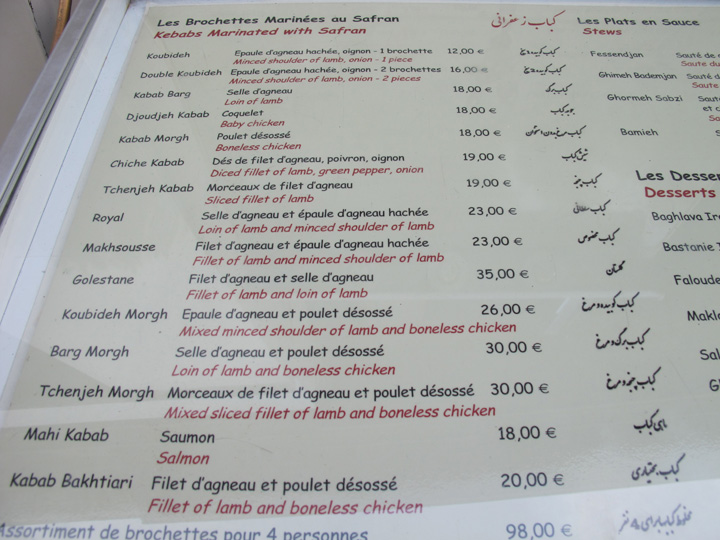 Les Brochettes Marinées au Safran کباب زعفرانی
Kebabs Marinated with Safran
Koubideh Epaule d'agneau hachée, oignon - 1 brochette 12,00 €
Minced shoulder of lamb, onion - 1 piece
Double Koubideh Epaule d'agneau hachée, oignon - 2 brochettes 16,00 €
Minced shoulder of lamb, onion - 2 pieces
Kabab Barg Selle d'agneau 18,00 € کباب برگ
Loin of lamb
Djoudjeh Kabab Coquelet 18,00 € جوجه کباب
Baby chicken
Kabab Morgh Poulet désossé 18,00 €
Boneless chicken
Chiche Kabab Dés de filet d'agneau, poivron, oignon 19,00 € شیش کباب
Diced fillet of lamb, green pepper, onion
Tchenjeh Kabab Morceaux de filet d'agneau 19,00 € کباب چنجه
Sliced fillet of lamb
Royal Selle d'agneau et épaule d'agneau hachée 23,00 € کباب سلطانی
Loin of lamb and minced shoulder of lamb
Makhsousse Filet d'agneau et épaule d'agneau hachée 23,00 € کباب مخصوص
Fillet of lamb and minced shoulder of lamb
Golestane Filet d'agneau et selle d'agneau 35,00 € گلستان
Fillet of lamb and loin of lamb
Koubideh Morgh Epaule d'agneau et poulet désossé 26,00 € کباب کوبیده و مرغ
Mixed minced shoulder of lamb and boneless chicken
Barg Morgh Selle d'agneau et poulet désossé 30,00 € کباب برگ و مرغ
Loin of lamb and boneless chicken
Tchenjeh Morgh Morceaux de filet d'agneau et poulet désossé 30,00 € کباب چنجه و مرغ
Mixed sliced fillet of lamb and boneless chicken
Mahi Kabab Saumon 18,00 € ماهی کباب
Salmon
Kabab Bakhtiari Filet d'agneau et poulet désossé 20,00 € کباب بختیاری
Fillet of lamb and boneless chicken
Assortiment de brochettes pour 4 personnes 98,00 €
Les Plats en Sauce
Stews
Fessendjan Sauté de
Sauté du
Ghimeh Bademjan Sauté
Sauté
Ghormeh Sabzi Sauté
et c
Bamieh
Les Desser
Desserts
Baghlava Ira
Bastanie
Faloude
Makl
Sal